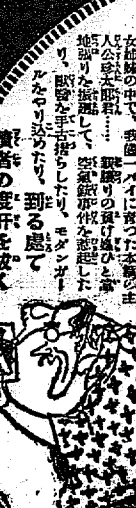 女姉妹の中で、我儘一パイに育つた本篇の主
人公珍太郎君……親譲りの負け嫌ひと意
地張りを振廻して、空気銃事件を惹起した
り、監督を手古摺らしたり、モダンガー
ルをやり込めたり、到る処で
読者の度肝を抜く